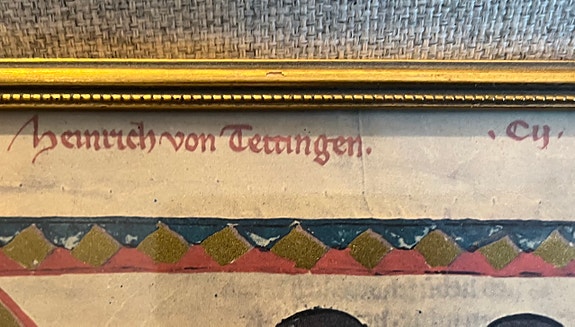 Heinrich von Tettingen. . Cij .